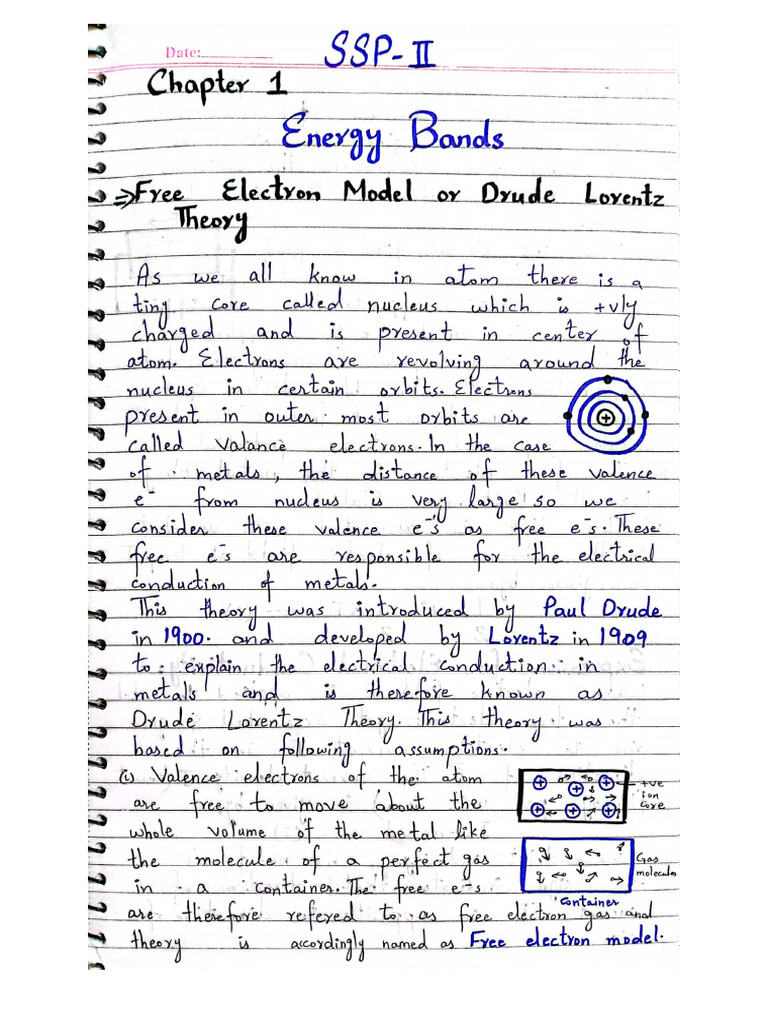 Date:
SSP-II
Chapter 1
Energy Bands
⇒Free Electron Model or Drude Lorentz
Theory
As we all know in atom there is a
tiny core called nucleus which is +vly
charged and is present in center of
atom. Electrons are revolving around the
nucleus in certain orbits. Electrons
present in outer most orbits are
called valance electrons. In the case
of metals, the distance of these valence
e⁻ from nucleus is very large so we
consider these valence e⁻'s as free e⁻s. These
free e⁻s are responsible for the electrical
conduction of metals.
This theory was introduced by Paul Drude
in 1900. and developed by Lorentz in 1909
to explain the electrical conduction in
metals and is therefore known as
Drude Lorentz Theory. This theory was
based on following assumptions.
(i) Valence electrons of the atom
are free to move about the
whole volume of the metal like
the molecule of a perfect gas
in a container. The free e⁻s
are therefore refered to as free electron gas and
theory is accordingly named as Free electron model.
+ve
ion
core
Gas
molecules
container